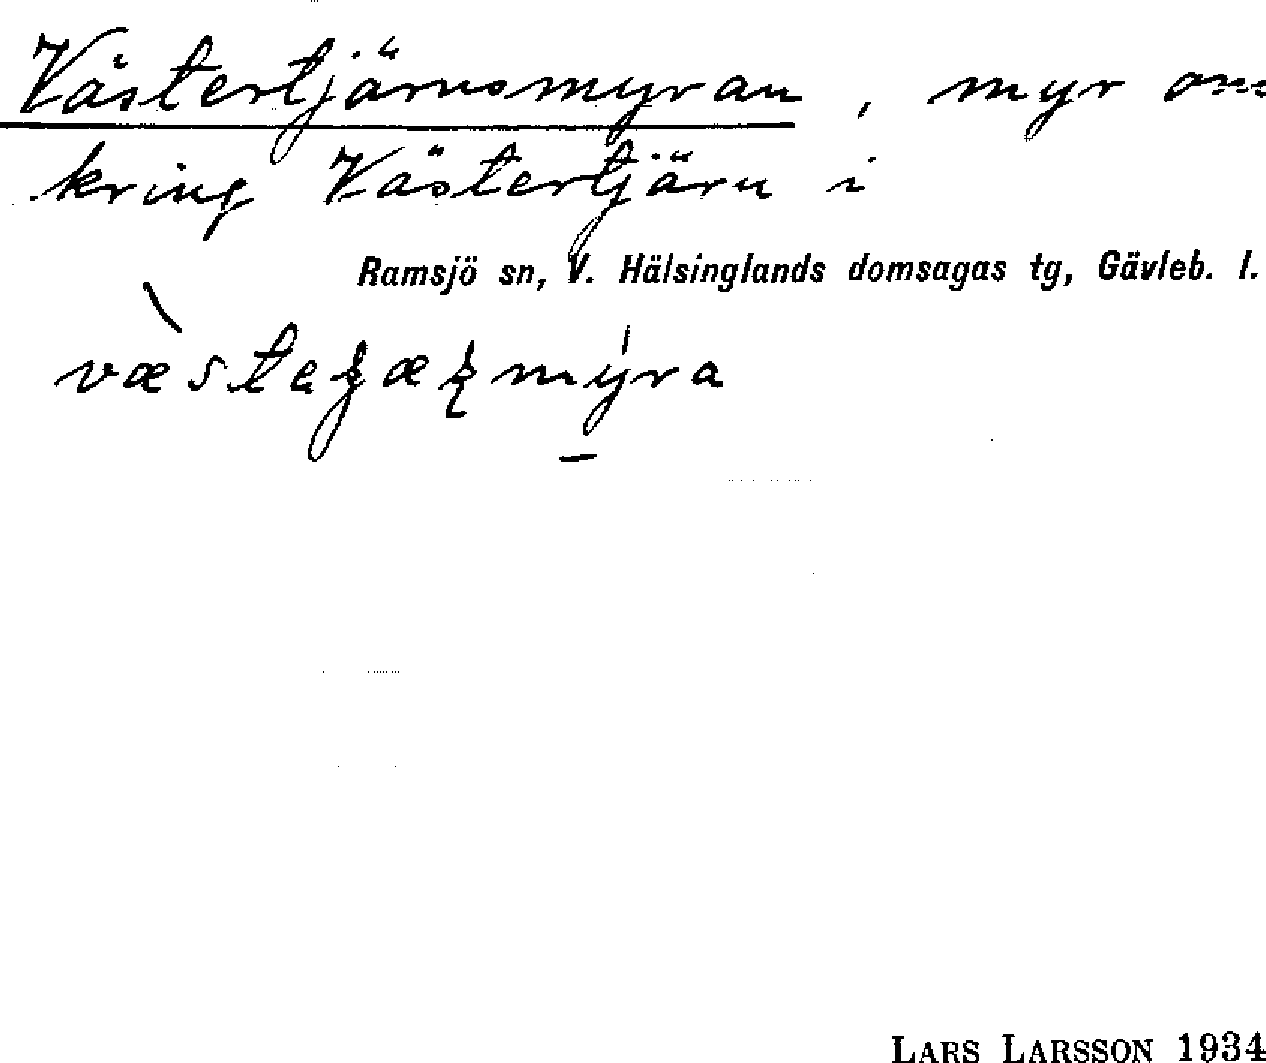 Västertjärnsmyran, myr om
kring Västertjärn i
Ramsjö sn, V. Hälsinglands domsagas tg, Gävleb. l.
LARS LARSSON 1934